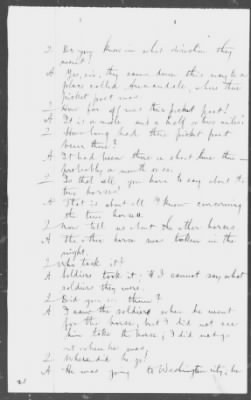 Q Do you know in what direction they
went?
A Yes, sir, they came down this way to a
place called Annandale, where their
picket post was.
Q How far off was this picket post?
A It is a mile and a half or two miles.
Q How long had their picket post
been there?
A It had been there a short time then —
probably a month or so.
Q Is that all you have to say about the
two horses?
A That is about all I know concerning
the two horses.
Q Now tell us about the other horse.
A The other horse was taken in the
night.
Q Who took it?
A Soldiers took it. I cannot say what
soldiers they were.
Q Did you see them?
A I saw the soldiers when he went
for the horse, but I did not see
him take the horse, I did not
when he was,
Q Where did he go?
A He was going to Washington city, he